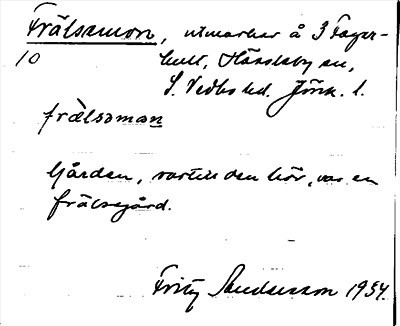 Frälsamon, utmarker å 3 Fager-
10 hult, Hässleby sn,
S. Vedbo hd. Jönk. l.
frälsaman
Gården, vartill den hör, var en
frälsegård.
Fritz Sandersson 1934.